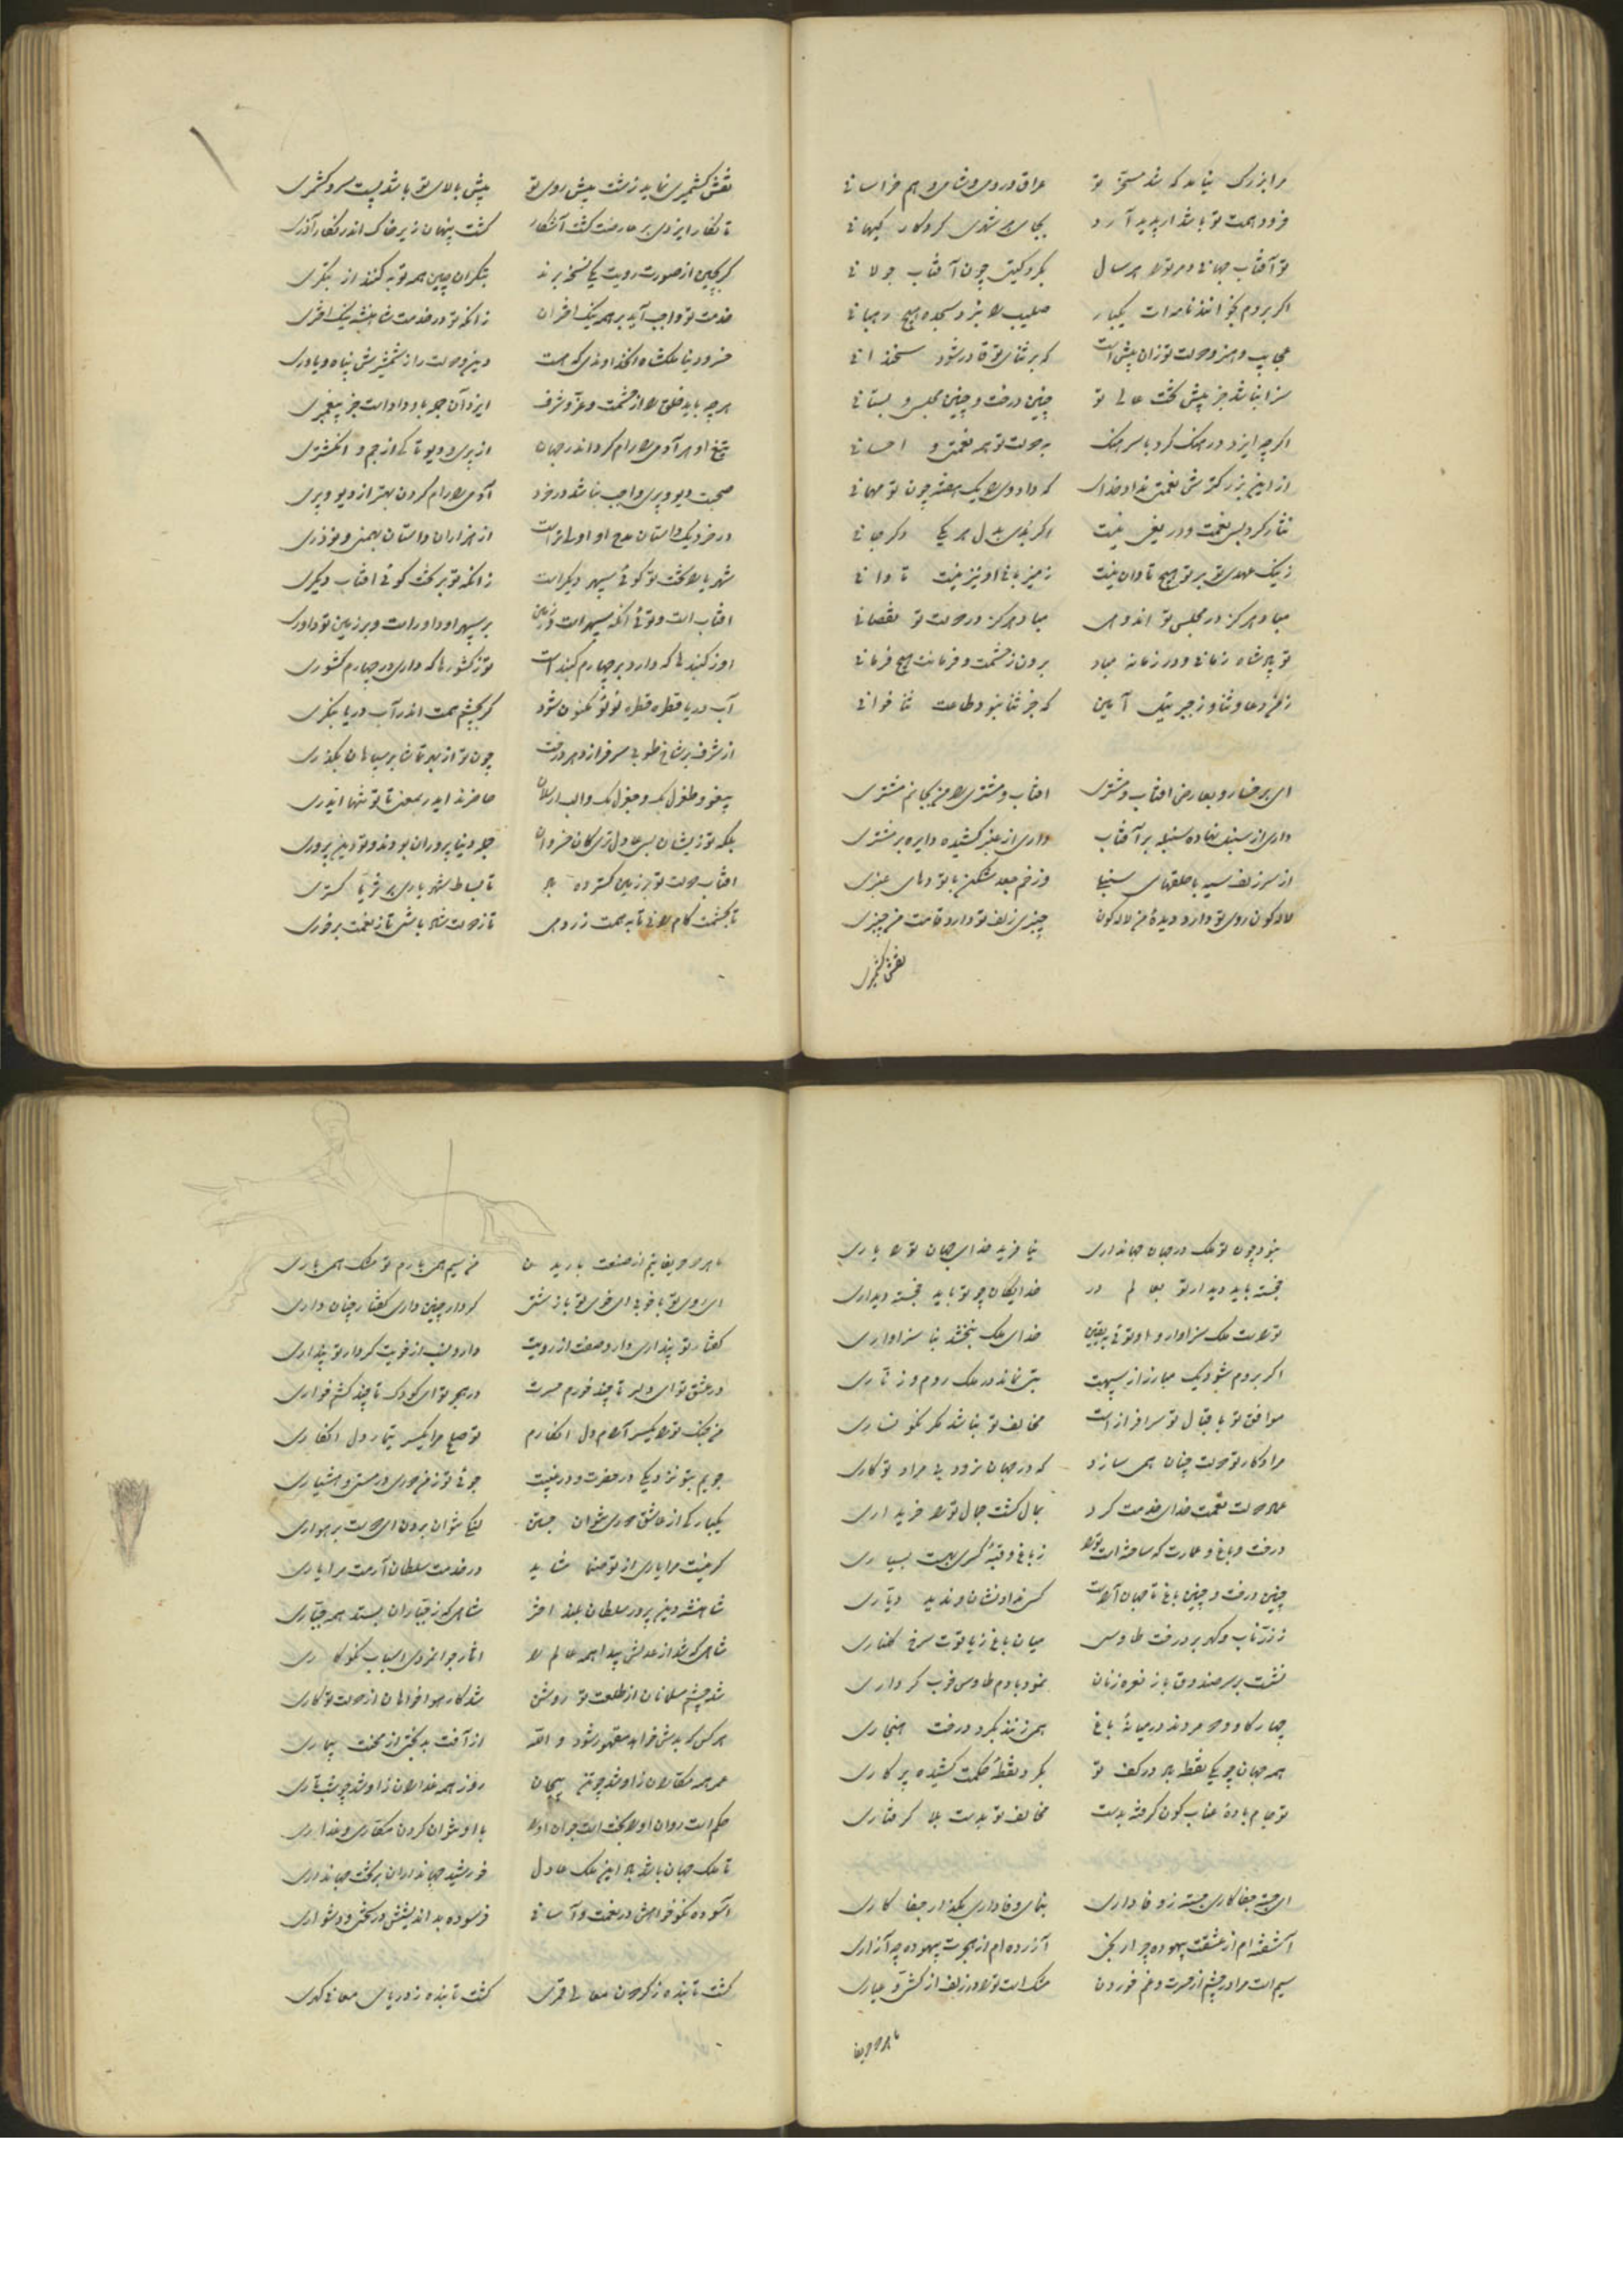 مرا بزرگ نیاید که شد مسخر تو عراق و روم و شام و هم خراسانی
فزود همت تو باشد ار پدید آرد بجای هر شهری کردگار کیهانی
تو آفتاب جهانی و مر ترا هر سال بگرد گیتی چون آفتاب جولانی
اگر بروم بخوانند نامه‌ات یکبار صلیب را نبرد سجده هیچ رهبانی
عجایب و هنر و دولت تو زان بیش است که بر ثنای تو قادر شود سخندانی
سزا نباشد جز پیش تخت عالی تو چنین درخت و چنین مجلس و بستانی
اگر چه ایزد هر یک به دولت تو همه نعمت و احسانی
از این بزرگترش نعمتی نداد خدای که داد وی را یک هفته چون تو مهمانی
نثار کرد بسی نعمت و دریغی نیست اگر بدی بدل هر یکی دگر جانی
ز نیک عهدی تو بر تو هیچ تاوان نیست ز میزبانی او نیز نیست تاوانی
مباد هرگز در مجلس تو اندوهی مباد هرگز در دولت تو نقصانی
تو پادشاه زمانی و در زمانه مباد برون ز حشمت و فرمانت هیچ فرمانی
ز تو دعا و ثنا وز جبریل آمین که جز ثنا نبود طاعت ثناخوانی
ای برخسار و بعارض آفتاب و مشتری آفتاب و مشتری را من بجانم مشتری
داری از سنبل نهاده سلسله بر آفتاب داری از عنبر کشیده دایره بر مشتری
از سر زلف سیه با حلقهای سنبلی وز خم جعد شکن با تودهای عنبری
لاله گون روی تو دارد دیده من لاله گون چنبری زلف تو دارد قامت من چنبری
نقش کشمیری
نقش کشمیری نماید زشت پیش روی تو پیش بالای تو باشد پست سرو کشمری
تا نگار ایزدی بر عارضت گشت آشکار گشت پنهان زیر خاک اندر نگار آذری
گر بچین از صورت رویت یکی نسخت برند بتگران چین همه توبه کنند از بتگری
خدمت تو واجب آید بر همه نیک اختران زانکه تو در خدمت شاهنشه نیک اختری
خسرو دنیا ملکشاه آن خداوندی که هست دین و دولت را ز شمشیرش پناه و یاوری
هر چه باید خلق را از حشمت و عز و شرف ایزد آن جمله بدو داد است جز پیغمبری
تیغ او هر آدمی را رام کرد اندر جهان از پری و دیو تا کی از جم و انگشتری
صحبت دیو و پری واجب نباشد در خرد آدمی را رام کردن بهتر از دیو و پری
در خرد یک داستان مدح او اولیتر است از هزاران داستان بهمنی و نوذری
شهریارا تخت تو گوئی سپهر دیگر است زانکه تو بر تخت گوئی آفتاب دیگری
آفتاب است و توئی آنکه سپهر است و زمین بر سپهر او داور است و بر زمین تو داوری
او ز گنبدها که دارد بر چهارم گنبد است تو ز کشورها که داری در چهارم کشوری
آب دریا قطره قطره لؤلؤ مکنون شود گر بچشم همت اندر آب دریا بنگری
از شرف بر شاخ طوبی سر فرازد هر درخت چون تو از بهر تماشا بر بیابان بگذری
پیغو و طغرل بک و چغری بک و الب ارسلان حاضرند ایدر بمعنی تا تو تنها ایدری
بلکه تو زیشان بسی عادلتری کان خسروان جمله دنیاپروران بودند و تو دین پروری
آفتاب دولت تو بر زمین گسترده باد تا بساط شهریاری بر ثریا گستری
تا بحشمت کام رانی تا بهمت زر دهی تا ز دولت شاد باشی تا ز نعمت برخوری
نبود چون تو ملک در جهان جهانداری نیافرید خدای جهان ترا یاری
خجسته باید دیدار تو بعالم در خدایگان چو تو باید خجسته دیداری
تراست ملک سزاوار و تو به یقین خدای ملک نبخشد بناسزاواری
اگر بروم شود یک مبارز از سپهت بتی نماند در ملک روم و زناری
موافق تو باقبال تو سرافراز است مخالف تو نباشد مگر نگونساری
مراد کار تو دولت چنان همی سازد که در جهان نرود بی مراد تو کاری
درخت و باغ و عمارت که ساخته است ترا ز باغ و قبه کسری به است بسیاری
چنین درخت و چنین باغ تا جهان آراست کس نداد نشان و ندید دیاری
ز زر ناب و گهر بر درخت طاوس میان باغ ز یاقوت سرخ گلناری
نشست بر سر صندوق باز نعره زنان نمود با دم طاوس خوب کرداری
چهار گاو همی زنند بگرد درخت هنجاری
همه جهان چو یکی نقطه باد در کف تو بگرد نقطه حکمت کشیده پرگاری
تو جام باده عناب گون گرفته بدست مخالف تو بدست بلا گرفتاری
ای جسته جفاکاری جسته ز وفاداری بنمای وفاداری بگذار جفاکاری
آشفته ام از عشقت بیهوده چرا رنجی آزرده ام از هجرت بیهوده چه آزاری
سیم است مرا در چشم از حسرت و غم خوردن مشک است ترا در زلف از کشی و عیاری
ما هر دو حریفا
ما هر دو حریفانیم از صنعت باریدن من سیم همی بارم تو مشک همی باری
ای روی تو با خوبی ای خوی تو با زشتی کردار چنین داری گفتار چنان داری
گفتار تو پنداری دارد صفت از رویت دارد نسب از خویت کردار تو پنداری
در عشق تو ای دلبر تا چند خورم حسرت در هجر تو ای کودک تا چند کشم خواری
من جنگ ترا یکسر آرام دل انگارم تو صلح مرا یکسر تیمار دل انگاری
جویم بتو نزدیکی در حضرت و در غیبت جوئی تو ز من دوری در مستی و هشیاری
یکبارگی از عاشق دوری نتوان جستن نیکی نتوان بردن ای دوست بدشواری
گر نیست مرا یاری از تو صنما شاید در خدمت سلطان است مرا یاری
شاهنشه دین پرور سلطان بلند اختر شاهی که ز جباران بستد همه جباری
شاهی که شد از عدلش پیدا همه عالم را آثار جوانمردی اسباب نکوکاری
شد چشم مسلمانان از طلعت تو روشن شد کار هواخواهان از دولت تو کاری
هر کس که بدش خواهد مقهور شود والله از آفت بدبختی از محنت بیماری
عمر همه مکاران زو شد چو تن پیچان روز همه غداران زو شد چو شب تاری
حکم است روان او را بخت است جوان او را با او نتوان کردن مکاری و غداری
تا ملک جهان باشد باد این ملک عادل خورشید جهانداران بر تخت جهانداری
آسوده نکوخواهش در نعمت و آسانی فرسوده بداندیشش در سختی و دشواری
گشت تابنده ز گردون معالی قمری گشت تابنده ز دریای معانی گهری